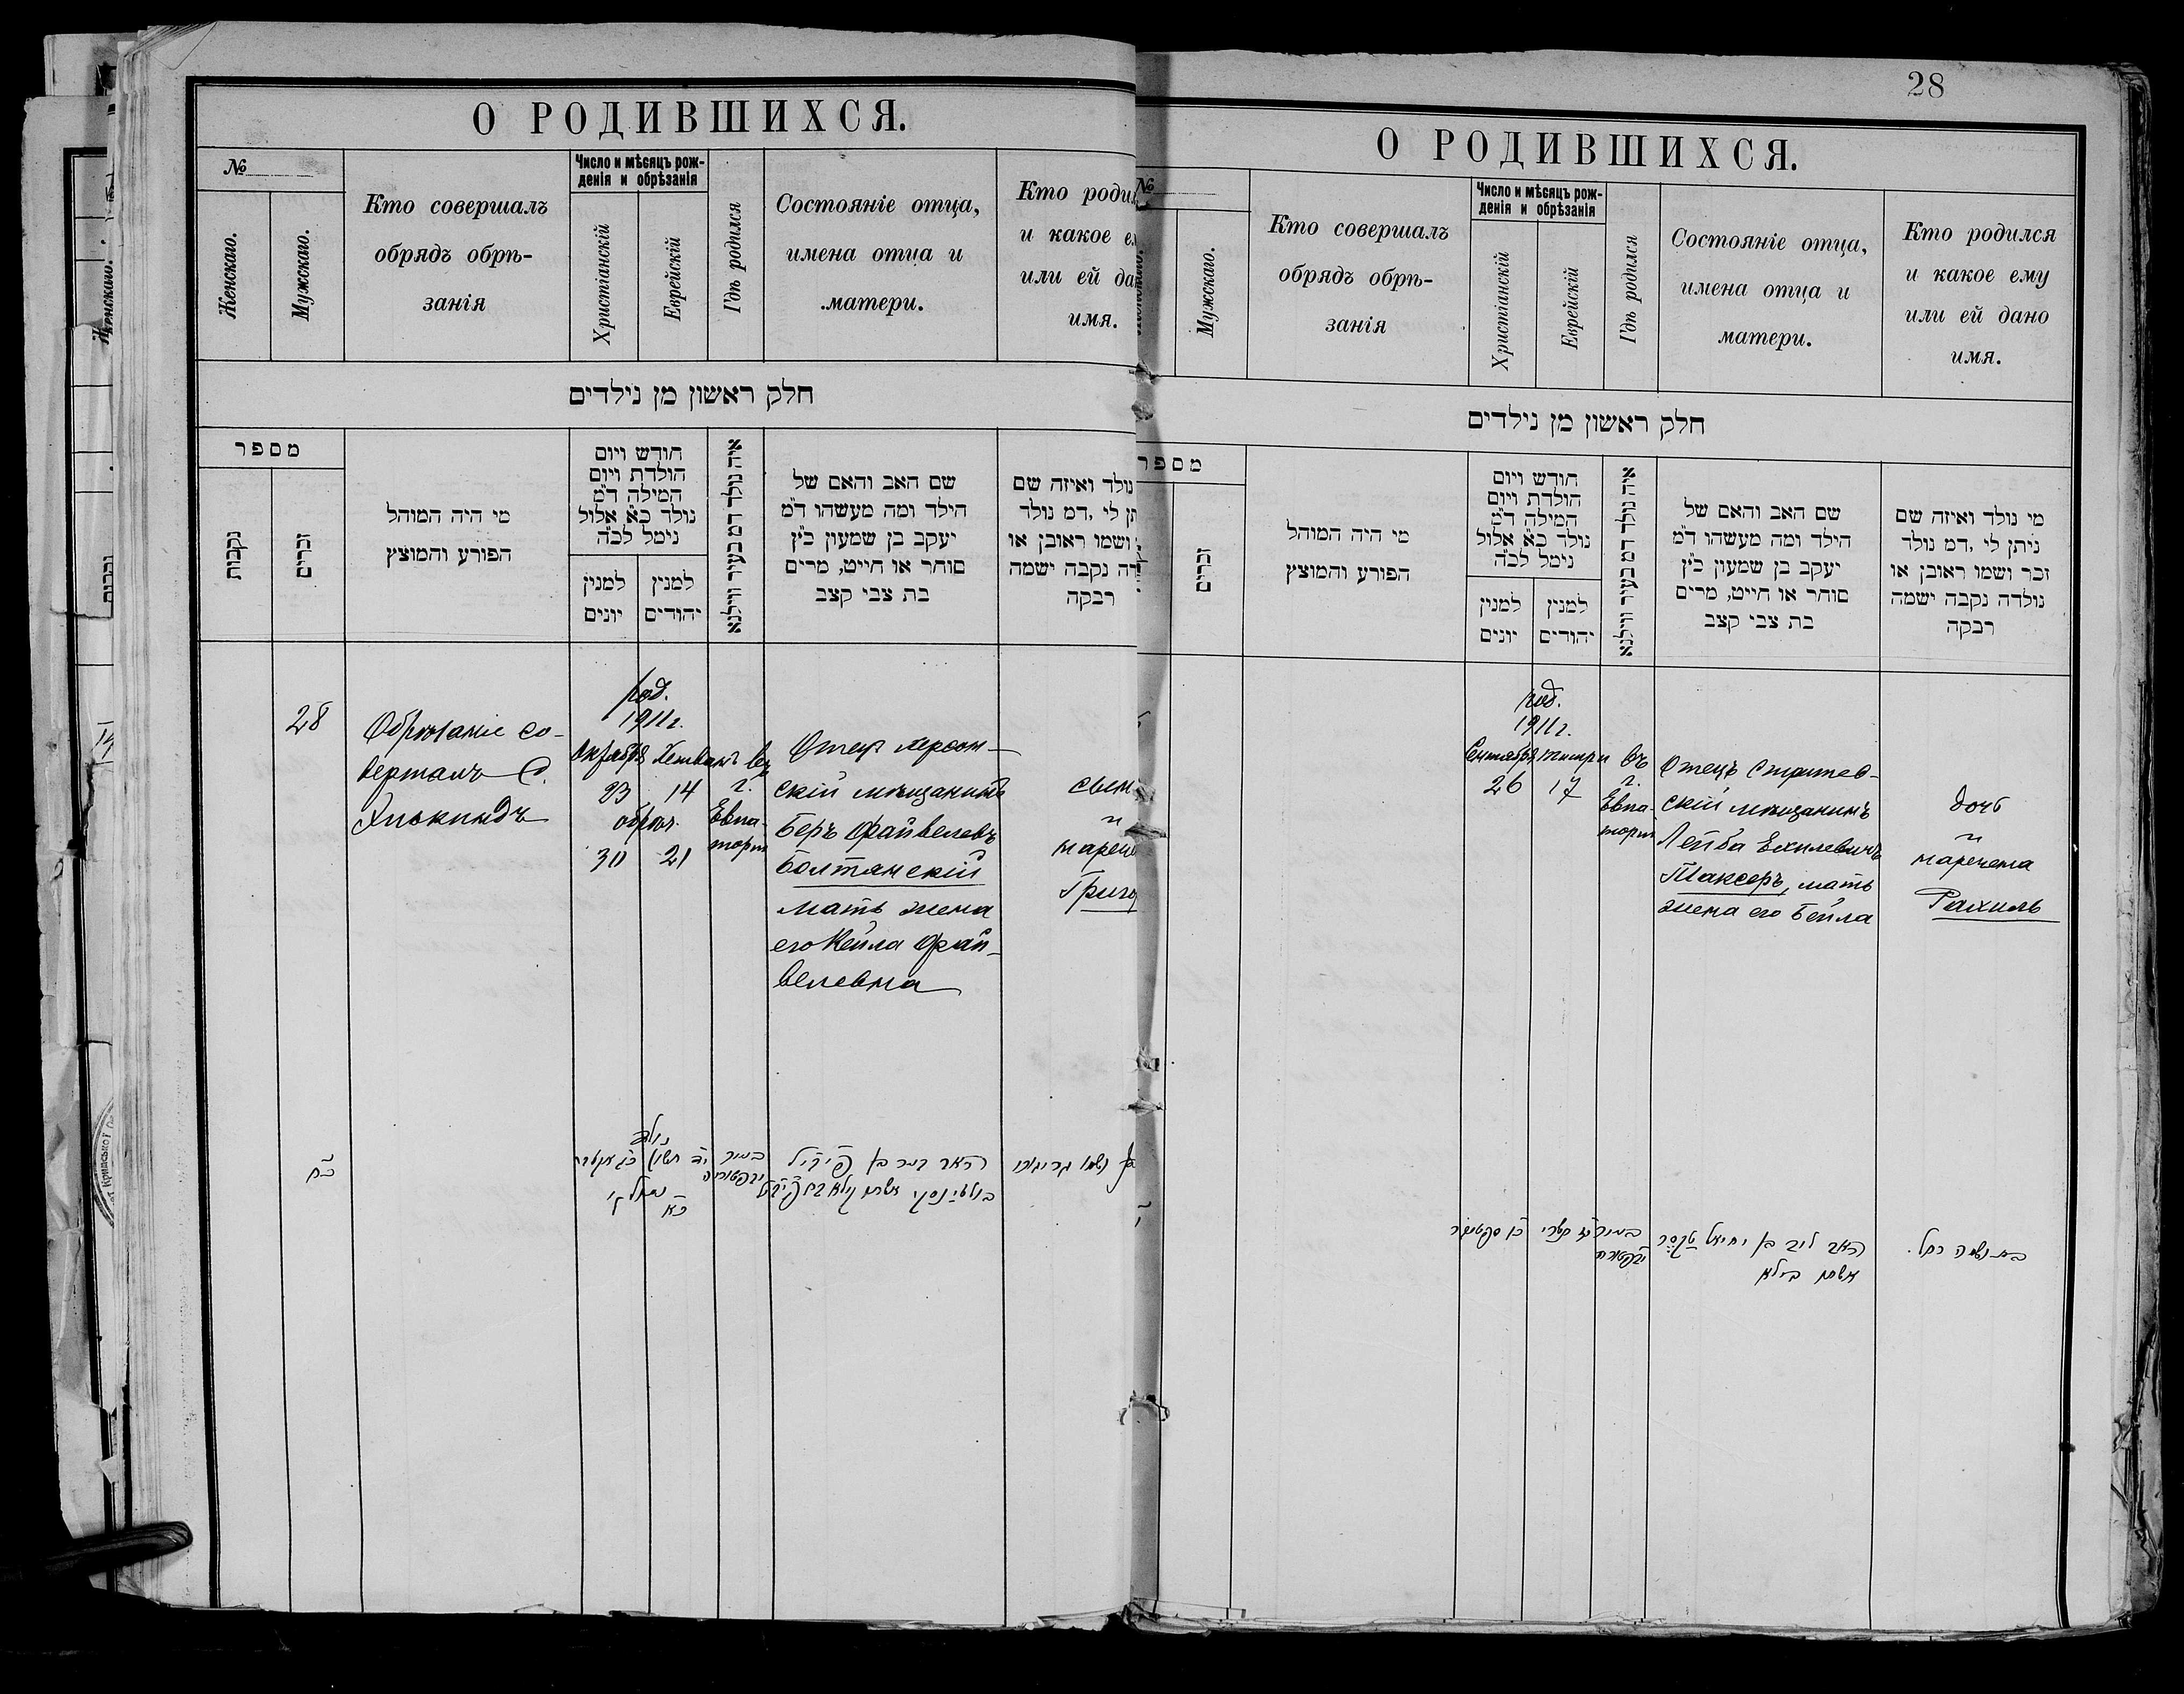 О РОДИВШИХСЯ.
№
Женскаго.
Мужскаго.
Кто совершалъ
обрядъ обрѣ-
занія
Число и мѣсяцъ рож-
денія и обрѣзанія
Христіанскій
Еврейскій
Гдѣ родился
Состояніе отца,
имена отца и
матери.
Кто родил
и какое е
или ей да
имя.
חלק ראשון מן נילדים
מספר
נקבות
זכרים
מי היה המוהל
הפורע והמוצץ
חודש ויום
הולדת ויום
המילה ד״מ
נולד כ״א אלול
נימל לכ״ה
למנין
יונים
למנין
יהודים
איה נולד דמ בעיר ווילנא
שם האב והאם של
הילד ומה מעשהו ד״מ
יעקב בן שמעון כ״ץ
סוחר או חייט, מרים
בת צבי קצב
נולד ואיזה שם
תן לי ,דמ נולד
ושמו ראובן או
דה נקבה ישמה
רבקה
28
Обрѣзаніе со-
вершалъ С.
Хиокиндъ
род.
1911 г.
Октября Хешванъ
23 14
обрѣз.
30 21
въ
г.
Евпа-
торіи
Отецъ херсон-
скій мѣщанинъ
Беръ Файвелевъ
Болтянскій
мать жена
его Кейла Фай-
велевна
сын
и
нарече
Григо
כח
נולד
יד חשון
כג אקטבר
נמול
כא
בעיר
יבפטוריה
האב בער בן פייויל
בולטינסקי אשתו קילא בת פייויל
ושמו גריגורי
28
О РОДИВШИХСЯ.
№
Мужскаго.
Кто совершалъ
обрядъ обрѣ-
занія
Число и мѣсяцъ рож-
денія и обрѣзанія
Христіанскій
Еврейскій
Гдѣ родился
Состояніе отца,
имена отца и
матери.
Кто родился
и какое ему
или ей дано
имя.
חלק ראשון מן נילדים
מספר
זכרים
מי היה המוהל
הפורע והמוצץ
חודש ויום
הולדת ויום
המילה ד״מ
נולד כ״א אלול
נימל לכ״ה
למנין
יונים
למנין
יהודים
איה נולד דמ בעיר ווילנא
שם האב והאם של
הילד ומה מעשהו ד״מ
יעקב בן שמעון כ״ץ
סוחר או חייט, מרים
בת צבי קצב
מי נולד ואיזה שם
ניתן לי ,דמ נולד
זכר ושמו ראובן או
נולדה נקבה ישמה
רבקה
род.
1911 г.
Сентября Тишри
26 17
въ
г.
Евпа-
торіи
Отецъ
скій мѣщанинъ
Лейба Ехилевичъ
Таксеръ, мать
жена его Бейла
дочь
и
наречена
Рахиль
כו ספטמבר
יז תשרי
בעיר
יבפטוריה
האב ליב בן יחיאל טקסר
אשתו בילא
בת ושמה רחל.